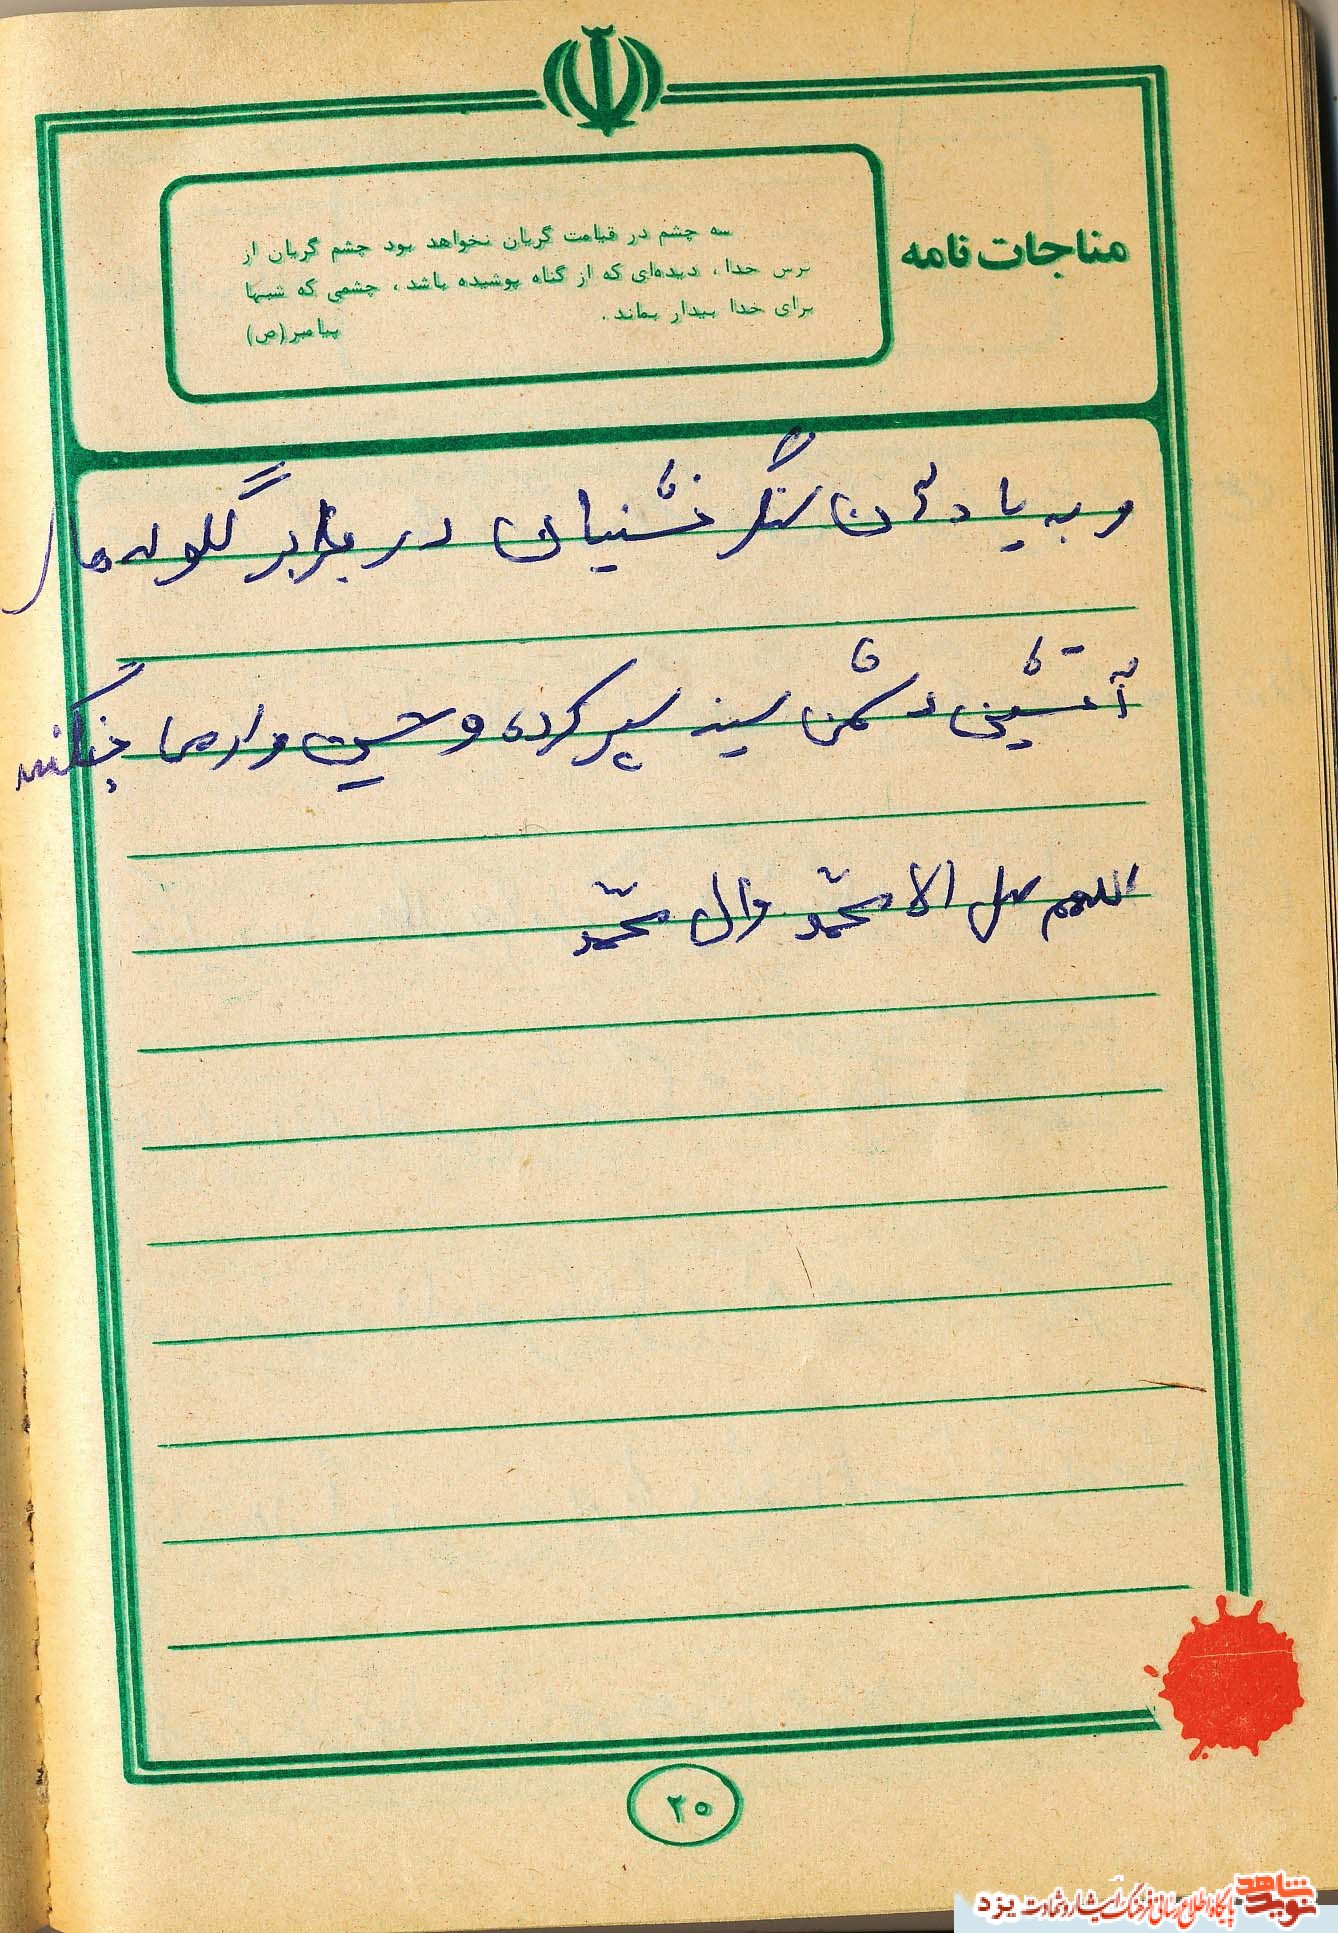 مناجات نامه
سه چشم در قیامت گریان نخواهد بود چشم گریان از
ترس خدا، دیده‌ای که از گناه پوشیده باشد، چشمی که شبها
برای خدا بیدار بماند.
پیامبر(ص)
و به یاد آن سنگر نشینیان در برابر گلوله های
آتشین دشمن سینه سپر کرده و حسین وارها جنگند
اللهم صل الا محمّد وال محمّد
۲۰
نوید شاهد
پایگاه اطلاع رسانی فرهنگ ایثار و شهادت یزد